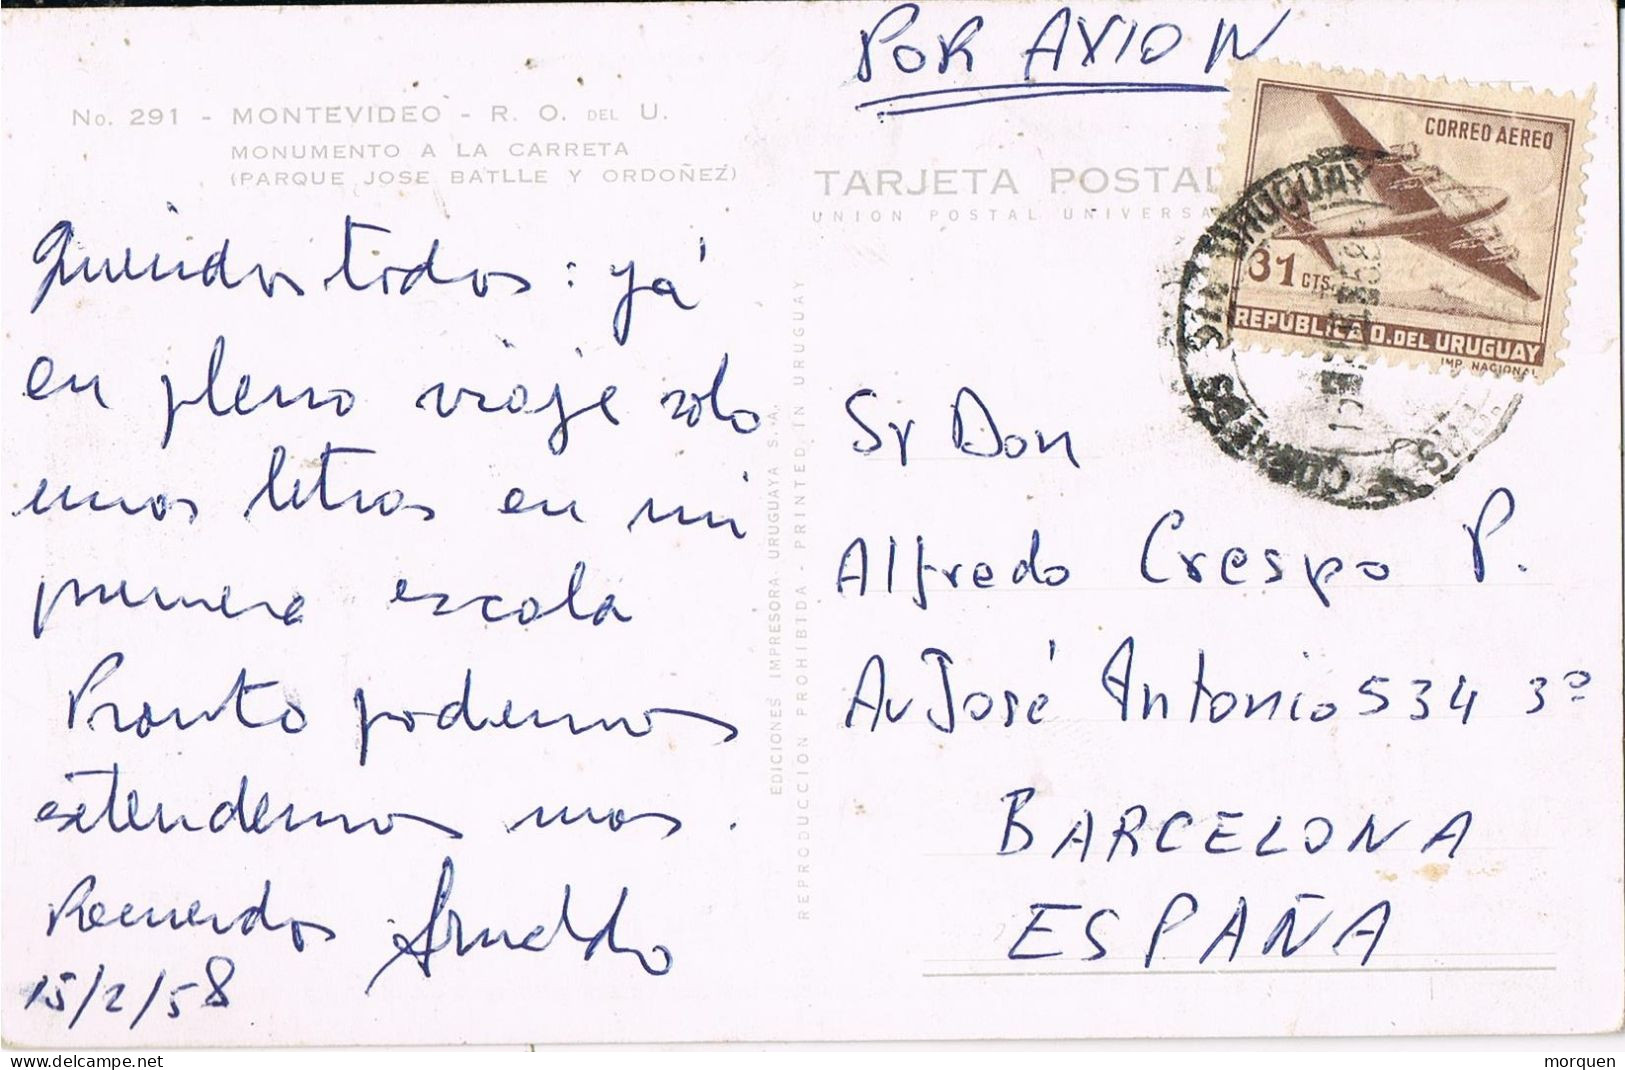 POR AVION
No. 291 - MONTEVIDEO - R. O. DEL U.
MONUMENTO A LA CARRETA
(PARQUE JOSE BATLLE Y ORDOÑEZ)
TARJETA POSTAL
UNION POSTAL UNIVERSA
CORREO AEREO
31 CTS.
REPÚBLICA O. DEL URUGUAY
IMP. NACIONAL
URUGUAY
CORREOS
Queridos todos: yá
en pleno viaje solo
unos letras en mi
primera escola
Pronto podemos
extendernos mas.
Recuerdos Arnaldo
15/2/58
EDICIONES IMPRESORA URUGUAYA S. A.
REPRODUCCION PROHIBIDA - PRINTED IN URUGUAY
Sr Don
Alfredo Crespo P.
Av José Antonio 534 3º
BARCELONA
ESPAÑA
morquen